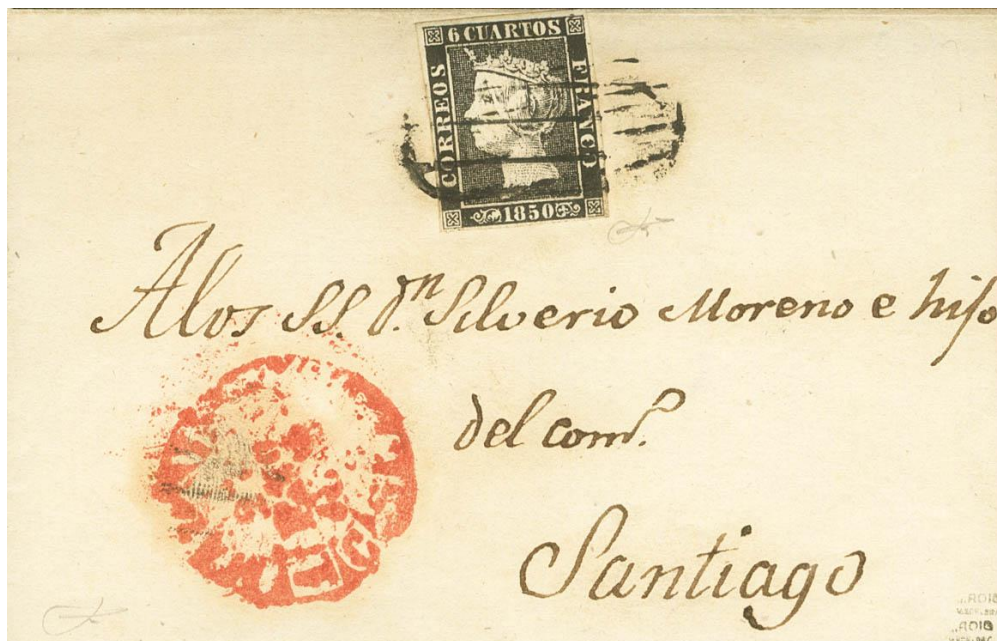 6 CUARTOS
CORREOS
FRANCO
1850
A los SS. Dn. Silverio Moreno e hijo
del com.
Santiago